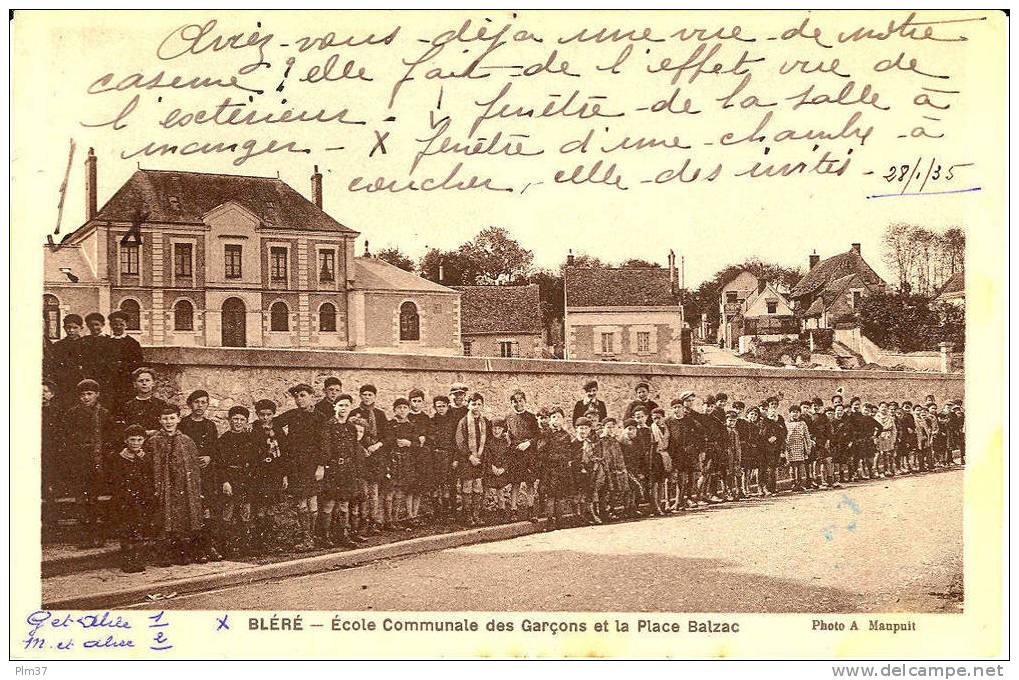 Aviez-vous déja une vue de notre
caserne ? elle fait de l'effet vue de
l'extérieur - fenêtre de la salle à
manger - x fenêtre d'une chambre à
coucher, celle des invités - 28/1/35
G et 1
M. et 2
x BLÉRÉ — École Communale des Garçons et la Place Balzac Photo A Maupuit
Plm37
www.delcampe.net